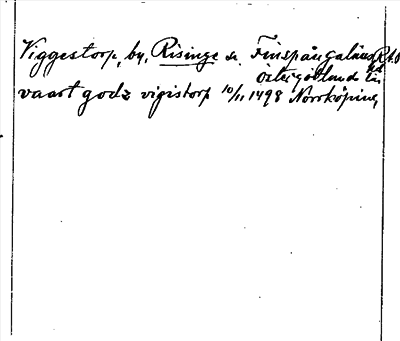 Viggestorp, by, Risinge sn. Finspångaläns hd
Östergötland län
vaart godz vigistorp 10/11 1498 Norrköping